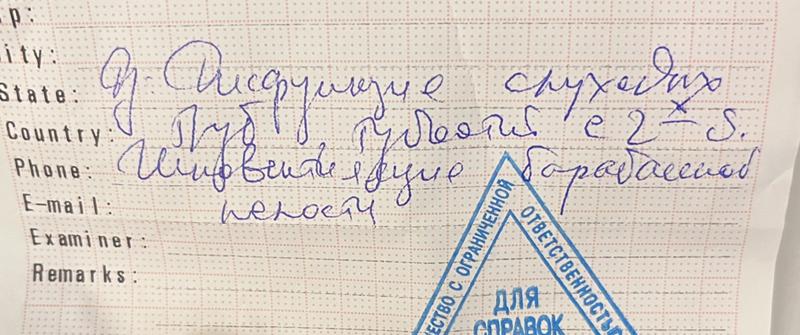 p:
ity:
State: Дз. Дисфункция слуховых
Country: труб, тубоотит с 2х S.
Phone: барабанной
E-mail: полости
Examiner:
Remarks:
ЕСТВО С ОГРАНИЧЕННОЙ
ОТВЕТСТВЕННОСТЬЮ
ДЛЯ
СПРАВОК